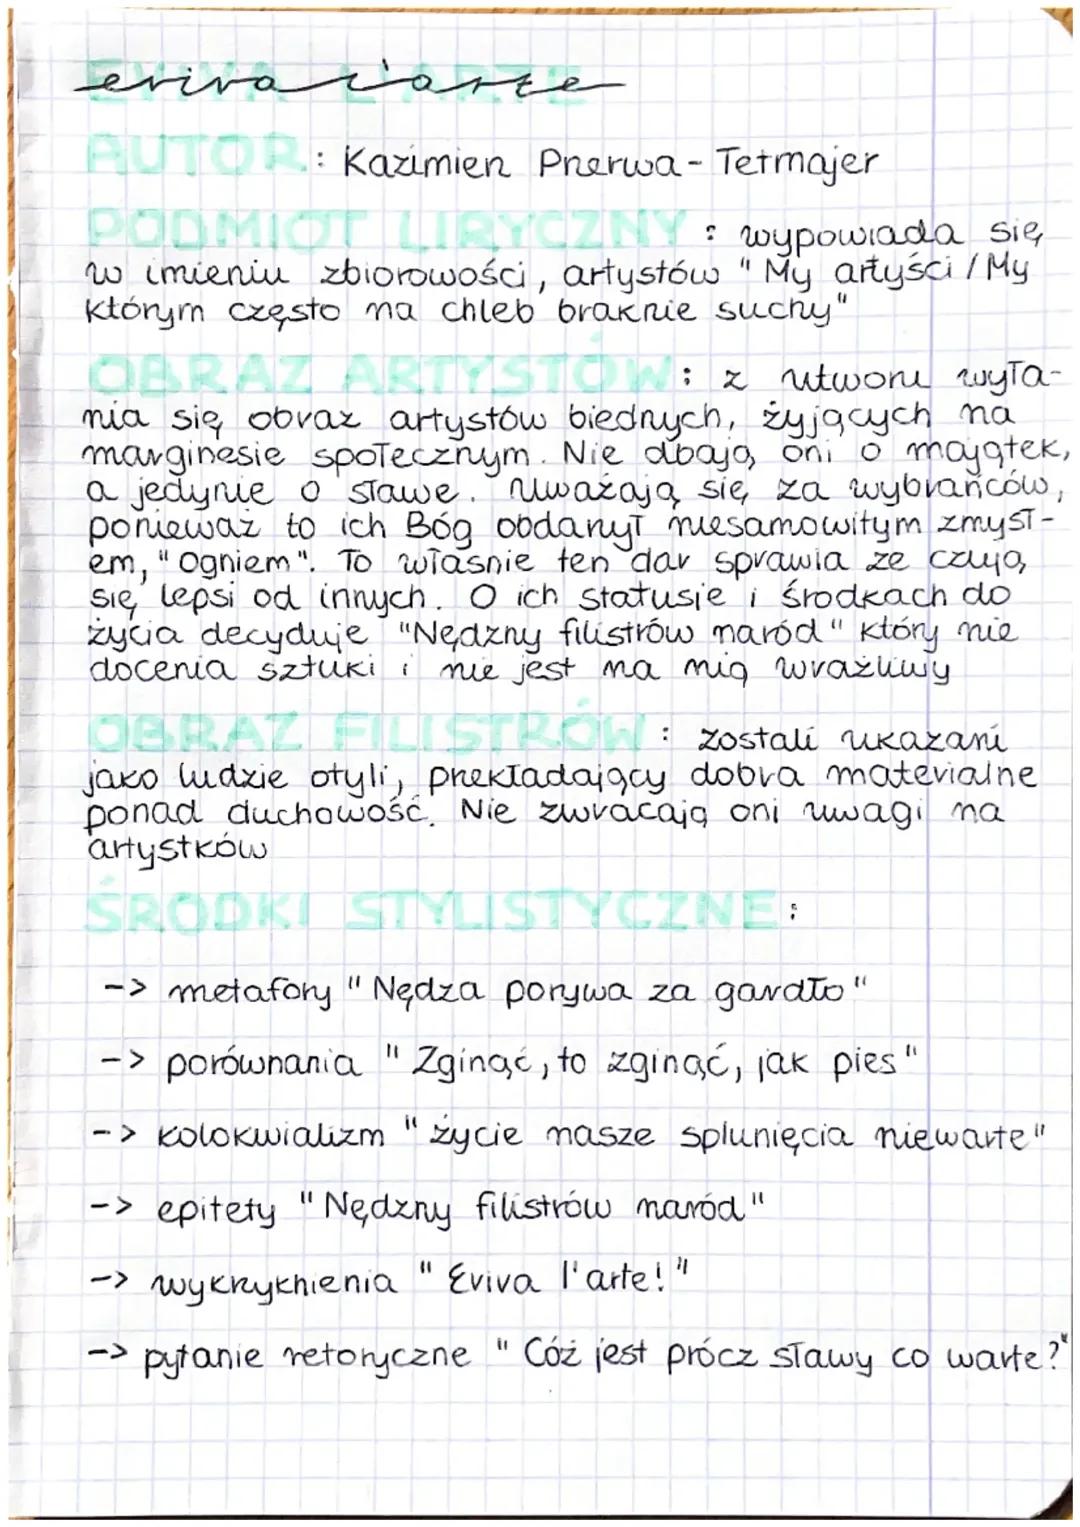 eviva l'arte
AUTOR: Kazimierz Przerwa-Tetmajer
PODMIOT LIRYCZNY: wypowiada się
w imieniu zbiorowości, artystów "My artyści / My
którym często na chleb braknie suchy"
OBRAZ ARTYSTÓW: z utworu wyła-
nia się obraz artystów biednych, żyjących na
marginesie społecznym. Nie dbają oni o majątek,
a jedynie o sławe. Uważają się za wybrańców,
ponieważ to ich Bóg obdarzył niesamowitym zmysł-
em, "Ogniem". To właśnie ten dar sprawia że czują
się lepsi od innych. O ich statusie i środkach do
życia decyduje "Nędzny filistrów naród" który nie
docenia sztuki i nie jest na nią wrażliwy
OBRAZ FILISTRÓW: zostali ukazani
jako ludzie otyli, przekładający dobra materialne
ponad duchowość. Nie zwracają oni uwagi na
artystków
ŚRODKI STYLISTYCZNE:
-> metafory "Nędza porywa za gardło"
-> porównania "Zginąć, to zginąć, jak pies"
-> kolokwializm "życie nasze splunięcia niewarte"
-> epitety "Nędzny filistrów naród"
-> wykrzyknienia "Eviva l'arte!"
-> pytanie retoryczne "Cóż jest prócz sławy co warte?"